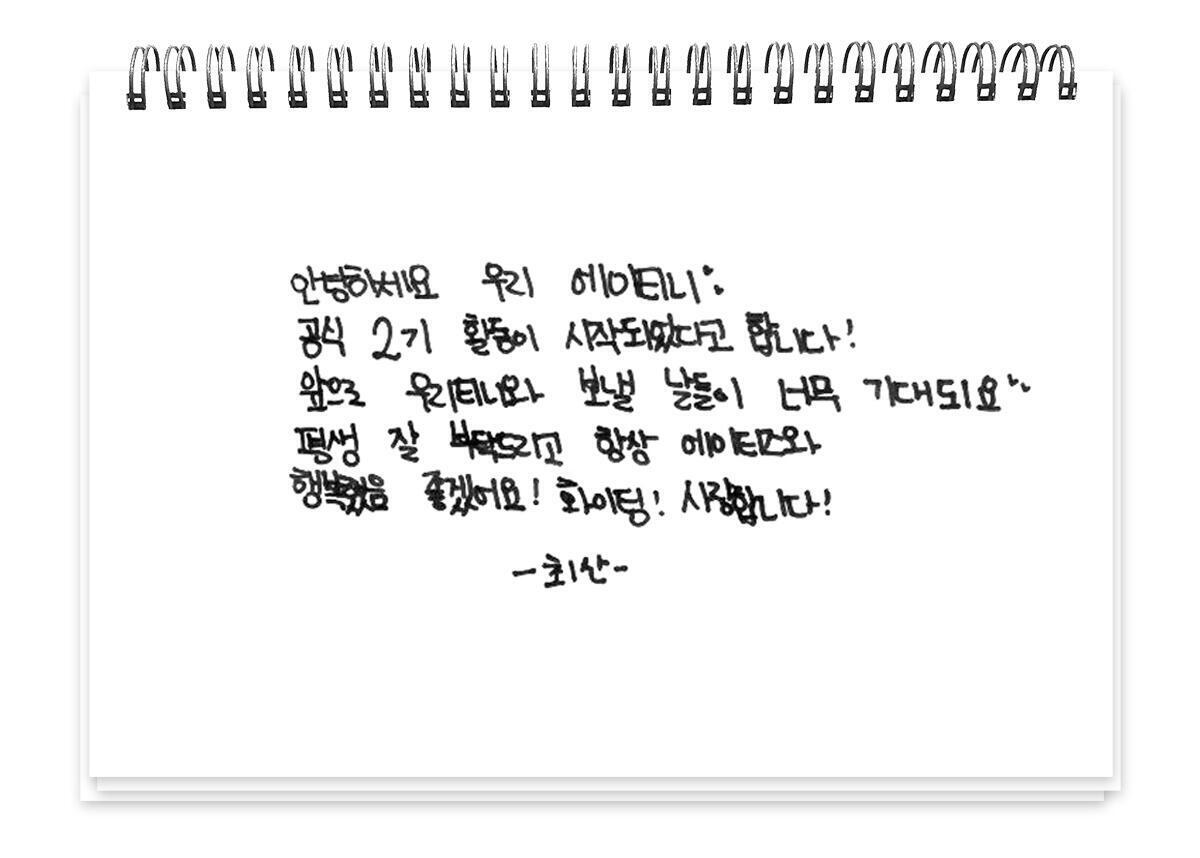 안녕하세요 우리 에이티니:
공식 2기 활동이 시작되었다고 합니다!
앞으로 우리티니와 보낼 날들이 너무 기대되요~
평생 잘 부탁드리고 항상 에이티즈와
행복했음 좋겠어요! 화이팅! 사랑합니다!
-최산-